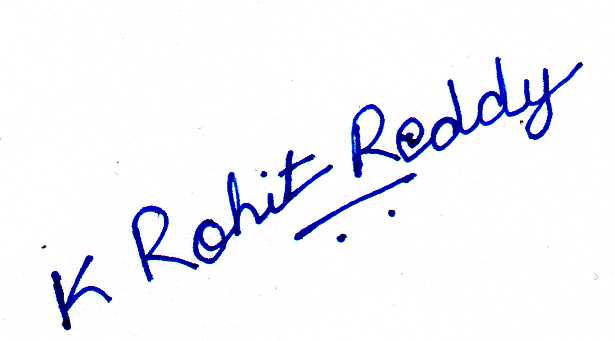 K Rohit Reddy